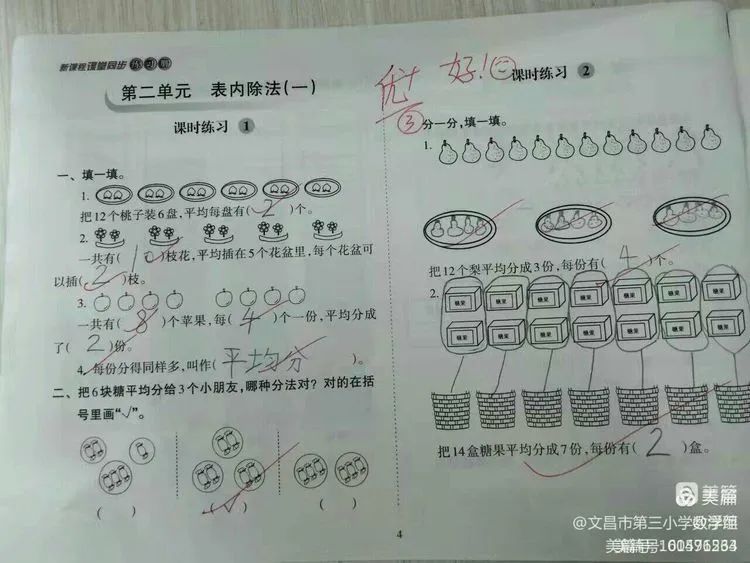 新课程课堂同步练习册
第二单元 表内除法(一)
课时练习 1
一、填一填。
1.
把12个桃子装6盘,平均每盘有( 2 )个。
2.
一共有( 10 )枝花,平均插在5个花盆里,每个花盆可
以插( 2 )枝。
3.
一共有( 8 )个苹果,每( 4 )个一份,平均分成
了( 2 )份。
4. 每份分得同样多,叫作( 平均分 )。
二、把6块糖平均分给3个小朋友,哪种分法对?对的在括
号里画“√”。
( ) (√) ( )
优+ 好!
课时练习 2
③分一分,填一填。
1.
把12个梨平均分成3份,每份有( 4 )个。
2.
糖果 糖果 糖果 糖果 糖果 糖果 糖果
糖果 糖果 糖果 糖果 糖果 糖果 糖果
把14盒糖果平均分成7份,每份有( 2 )盒。
4
美篇
@文昌市第三小学
美篇号